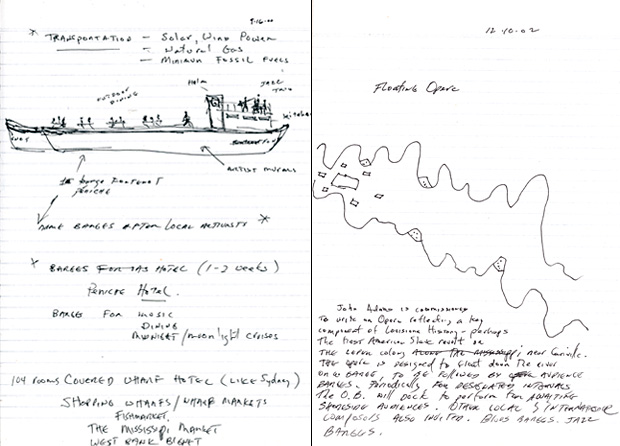 9-16-00
* TRANSPORTATION - SOLAR, WIND POWER
- NATURAL GAS
- MINIMUM FOSSIL FUELS
OUTDOOR DINING
HELM
JAZZ TRIO
ARTIST MURALS
1st BARGE
NAME BARGES AFTER LOCAL ACTIVISTS *
* BARGES FOR HOTEL (1-2 WEEKS)
PENICHE HOTEL.
BARGE FOR MUSIC
DINING
MIDNIGHT / MOONLIGHT CRUISES
104 ROOMS COVERED WHARF HOTEL (LIKE SYDNEY)
SHOPPING WHARFS / WHARF MARKETS
FISHMARKET,
THE MISSISSIPPI MARKET
WEST BANK BIGHT
12.10.02
FLOATING OPERA
John Adams is commissioned
To write an Opera reflecting a key
component of Louisiana History - perhaps
The First American Slave revolt or
THE LEPER COLONY ALONG THE MISSISSIPPI, near Carville.
THE OPERA is designed to float down the river
on a BARGE, TO BE FOLLOWED BY AUDIENCE
BARGES. Periodically FOR DESIGNATED INTERVALS
The O.B. will dock to perform for AWAITING
SHORESIDE AUDIENCES. OTHER LOCAL & INTERNATIONAL
COMPOSERS ALSO INVITED. BLUES BARGES. JAZZ
BARGES.